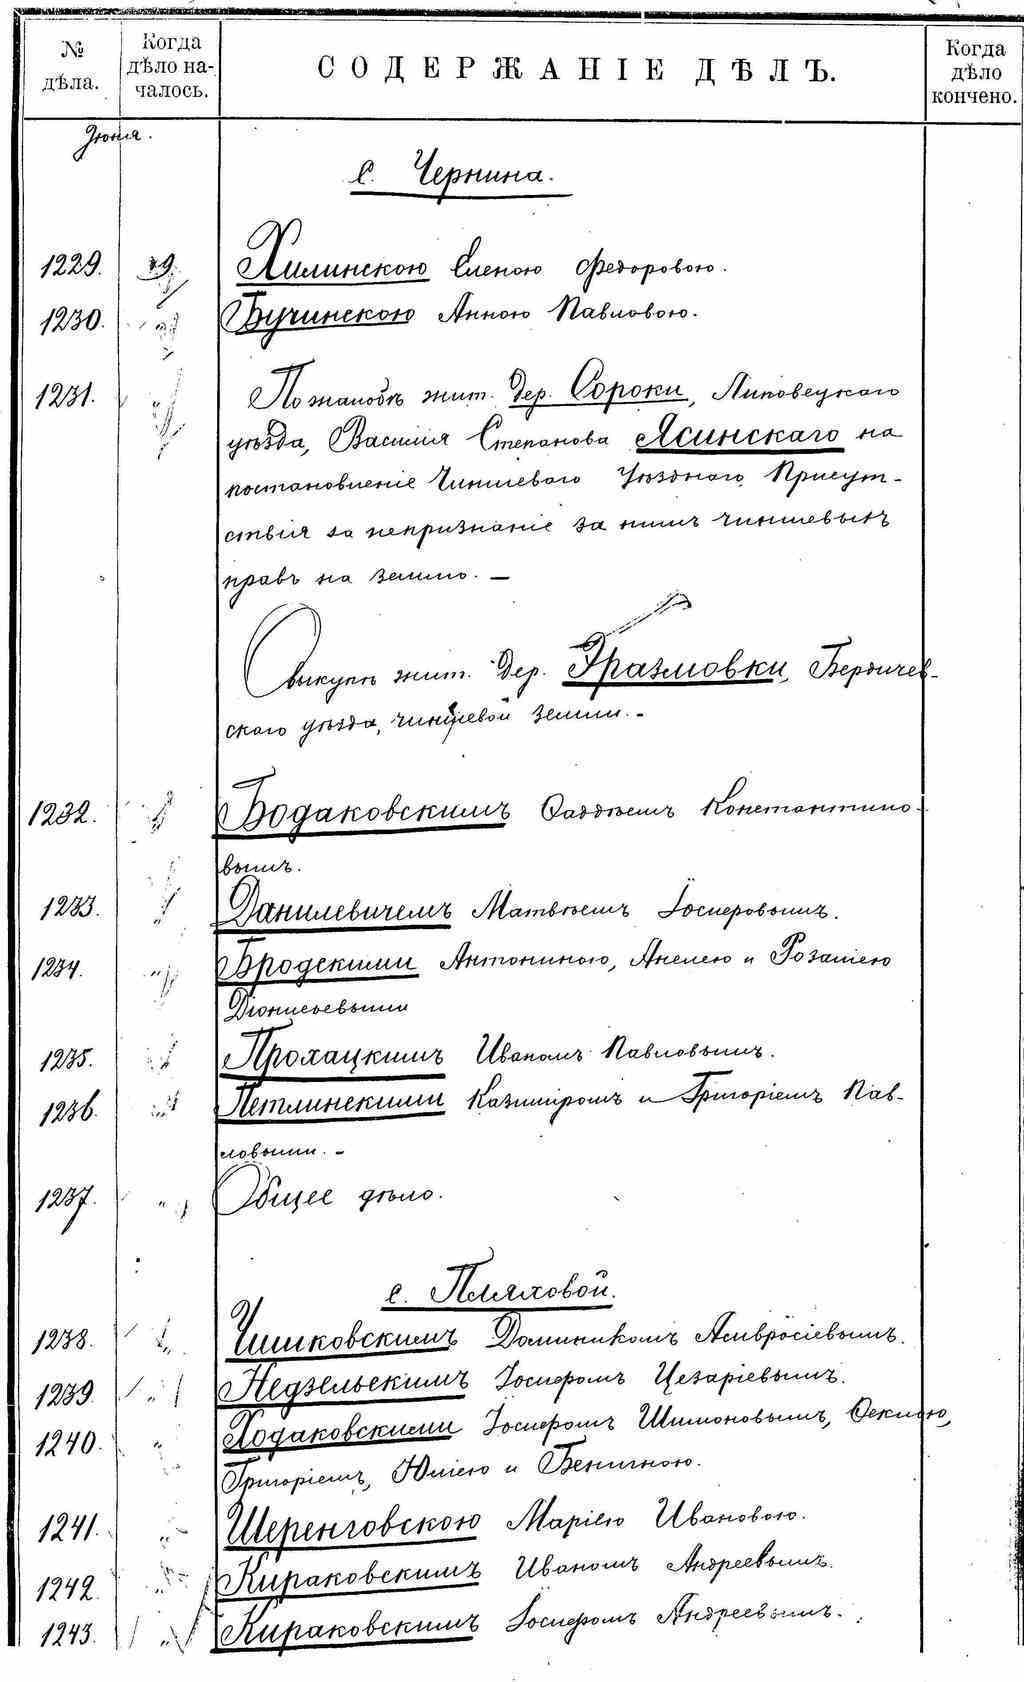 № дѣла.
Когда дѣло началось.
СОДЕРЖАНІЕ ДѢЛЪ.
Когда дѣло кончено.
Іюня.
с. Чернина.
1229. 9. Хилинскою Еленою Федоровою.
1230. " Бучинскою Анною Павловою.
1231. " По жалобѣ жит. дер. Сороки, Липовецкаго
уѣзда, Василія Степанова Ясинскаго на
постановленіе Чиншеваго Уѣзднаго Присут-
ствія за непризнаніе за нимъ чиншевыхъ
правъ на землю. —
О выкупѣ жит. дер. Эразмовки, Бердичев-
скаго уѣзда, чиншевой земли. -
1232. " Бодаковскимъ Фаддѣемъ Константино-
вымъ.
1233. " Данилевичемъ Матвѣемъ Іосиφовымъ.
1234. " Бродскими Антониною, Анелею и Розаліею
Діонисьевыми
1235. " Прохацкимъ Иваномъ Павловымъ.
1236. " Петлинскими Казиміромъ и Григоріемъ Пав-
ловыми. -
1237. " Общее дѣло.
с. Пляховой.
1238. " Чишковскимъ Доминикомъ Амвросіевымъ.
1239 " Недзельскимъ Іосифомъ Цезаріевымъ.
1240. " Ходаковскими Іосифомъ Шимоновымъ, Ѳеклою,
Григоріемъ, Юліею и Бенигною.
1241. " Шеренговскою Маріею Ивановою.
1242. " Кираковскимъ Иваномъ Андреевымъ.
1243. " Кираковскимъ Іосифомъ Андреевымъ.